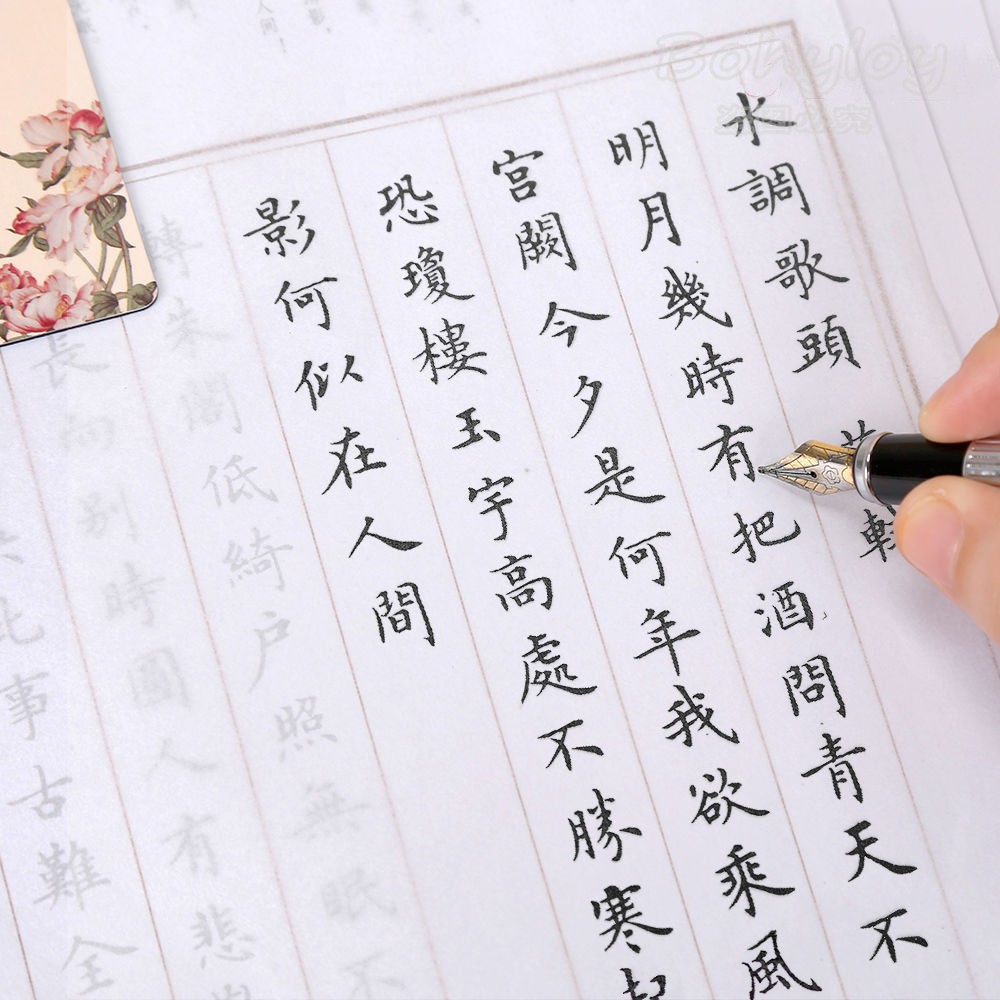 Bohyloy
水調歌頭
明月幾時有把酒問青天不
宮闕今夕是何年我欲乘風
恐瓊樓玉宇高處不勝寒
影何似在人間
轉朱閣低綺户照無眠不
長向别時圓人有悲
此事古難全